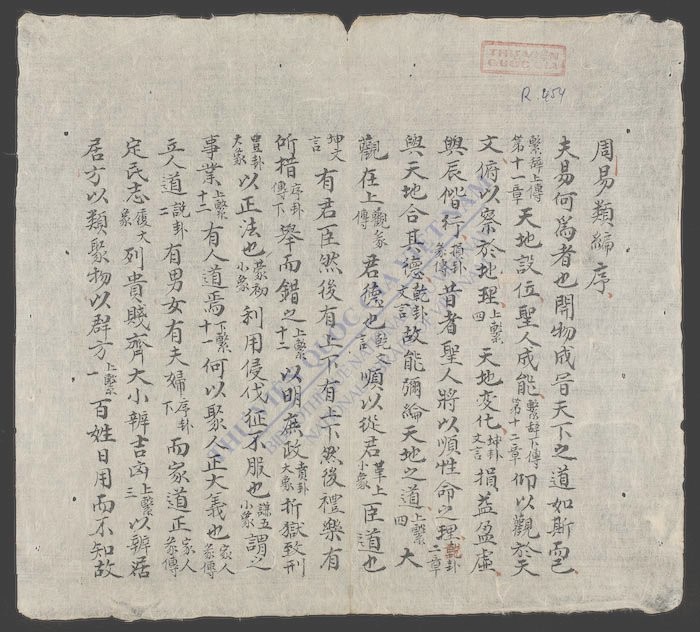 THƯ VIỆN
QUỐC GIA
R.454
周易類編序
夫易何爲者也開物成冒天下之道如斯而已
繫辭上傳第十一章天地設位聖人成能繫辭下傳第十二章仰以觀於天
文俯以察於地理上繫四天地變化坤卦文言損益盈虛
與辰偕行損卦彖傳昔者聖人將以順性命之理說卦二章
與天地合其德乾卦文言故能彌綸天地之道上繫四大
觀在上觀彖傳君德也乾文言順以從君革上小象臣道也
坤文言有君臣然後有上下有上下然後禮樂有
所措序卦傳下舉而錯之上繫十二以明庶政賁卦大象折獄致刑
豐卦大象以正法也蒙初小象利用侵伐征不服也謙五小象謂之
事業上繫十二有人道焉下繫十一何以聚人正大義也家人彖傳
立人道說卦二有男女有夫婦序卦下而家道正家人彖傳
定民志履大象列貴賤齊大小辨吉凶上繫三以辨居
居方以類聚物以群方上繫一百姓日用而不知故
THƯ VIỆN QUỐC GIA VIỆT NAM
BIBLIOTHÈQUE NATIONALE DU VIETNAM
NATIONAL LIBRARY OF VIETNAM